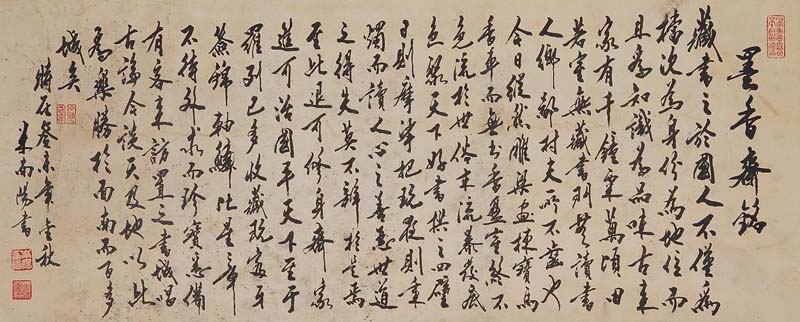 墨香斋銘
藏書之於國人不僅為
標次為身份為地位而
且為知識為品味古来
家有千鐘粟萬頃田
若室無藏書朗朗讀書
人鄉鄙村夫所不齒也
今日縱然雕樑畫棟寶馬
香車而無書香盈室然不
免流於世俗末流暴發
忽聚天下好書撰之四壁
日則摩挲把玩夜則秉
燭而讀人心之善惡世道
之得失莫不辨於是焉
至此退可修身齋家
進可治國平天下至于
羅列已多收藏既富牙
簽錦軸鱗比星章
不待外求而珍寶悉備
有客来訪置之書城唱
古論今談天及地以此
為樂勝於面南而百
城矣
時在癸未年金秋
米南陽書